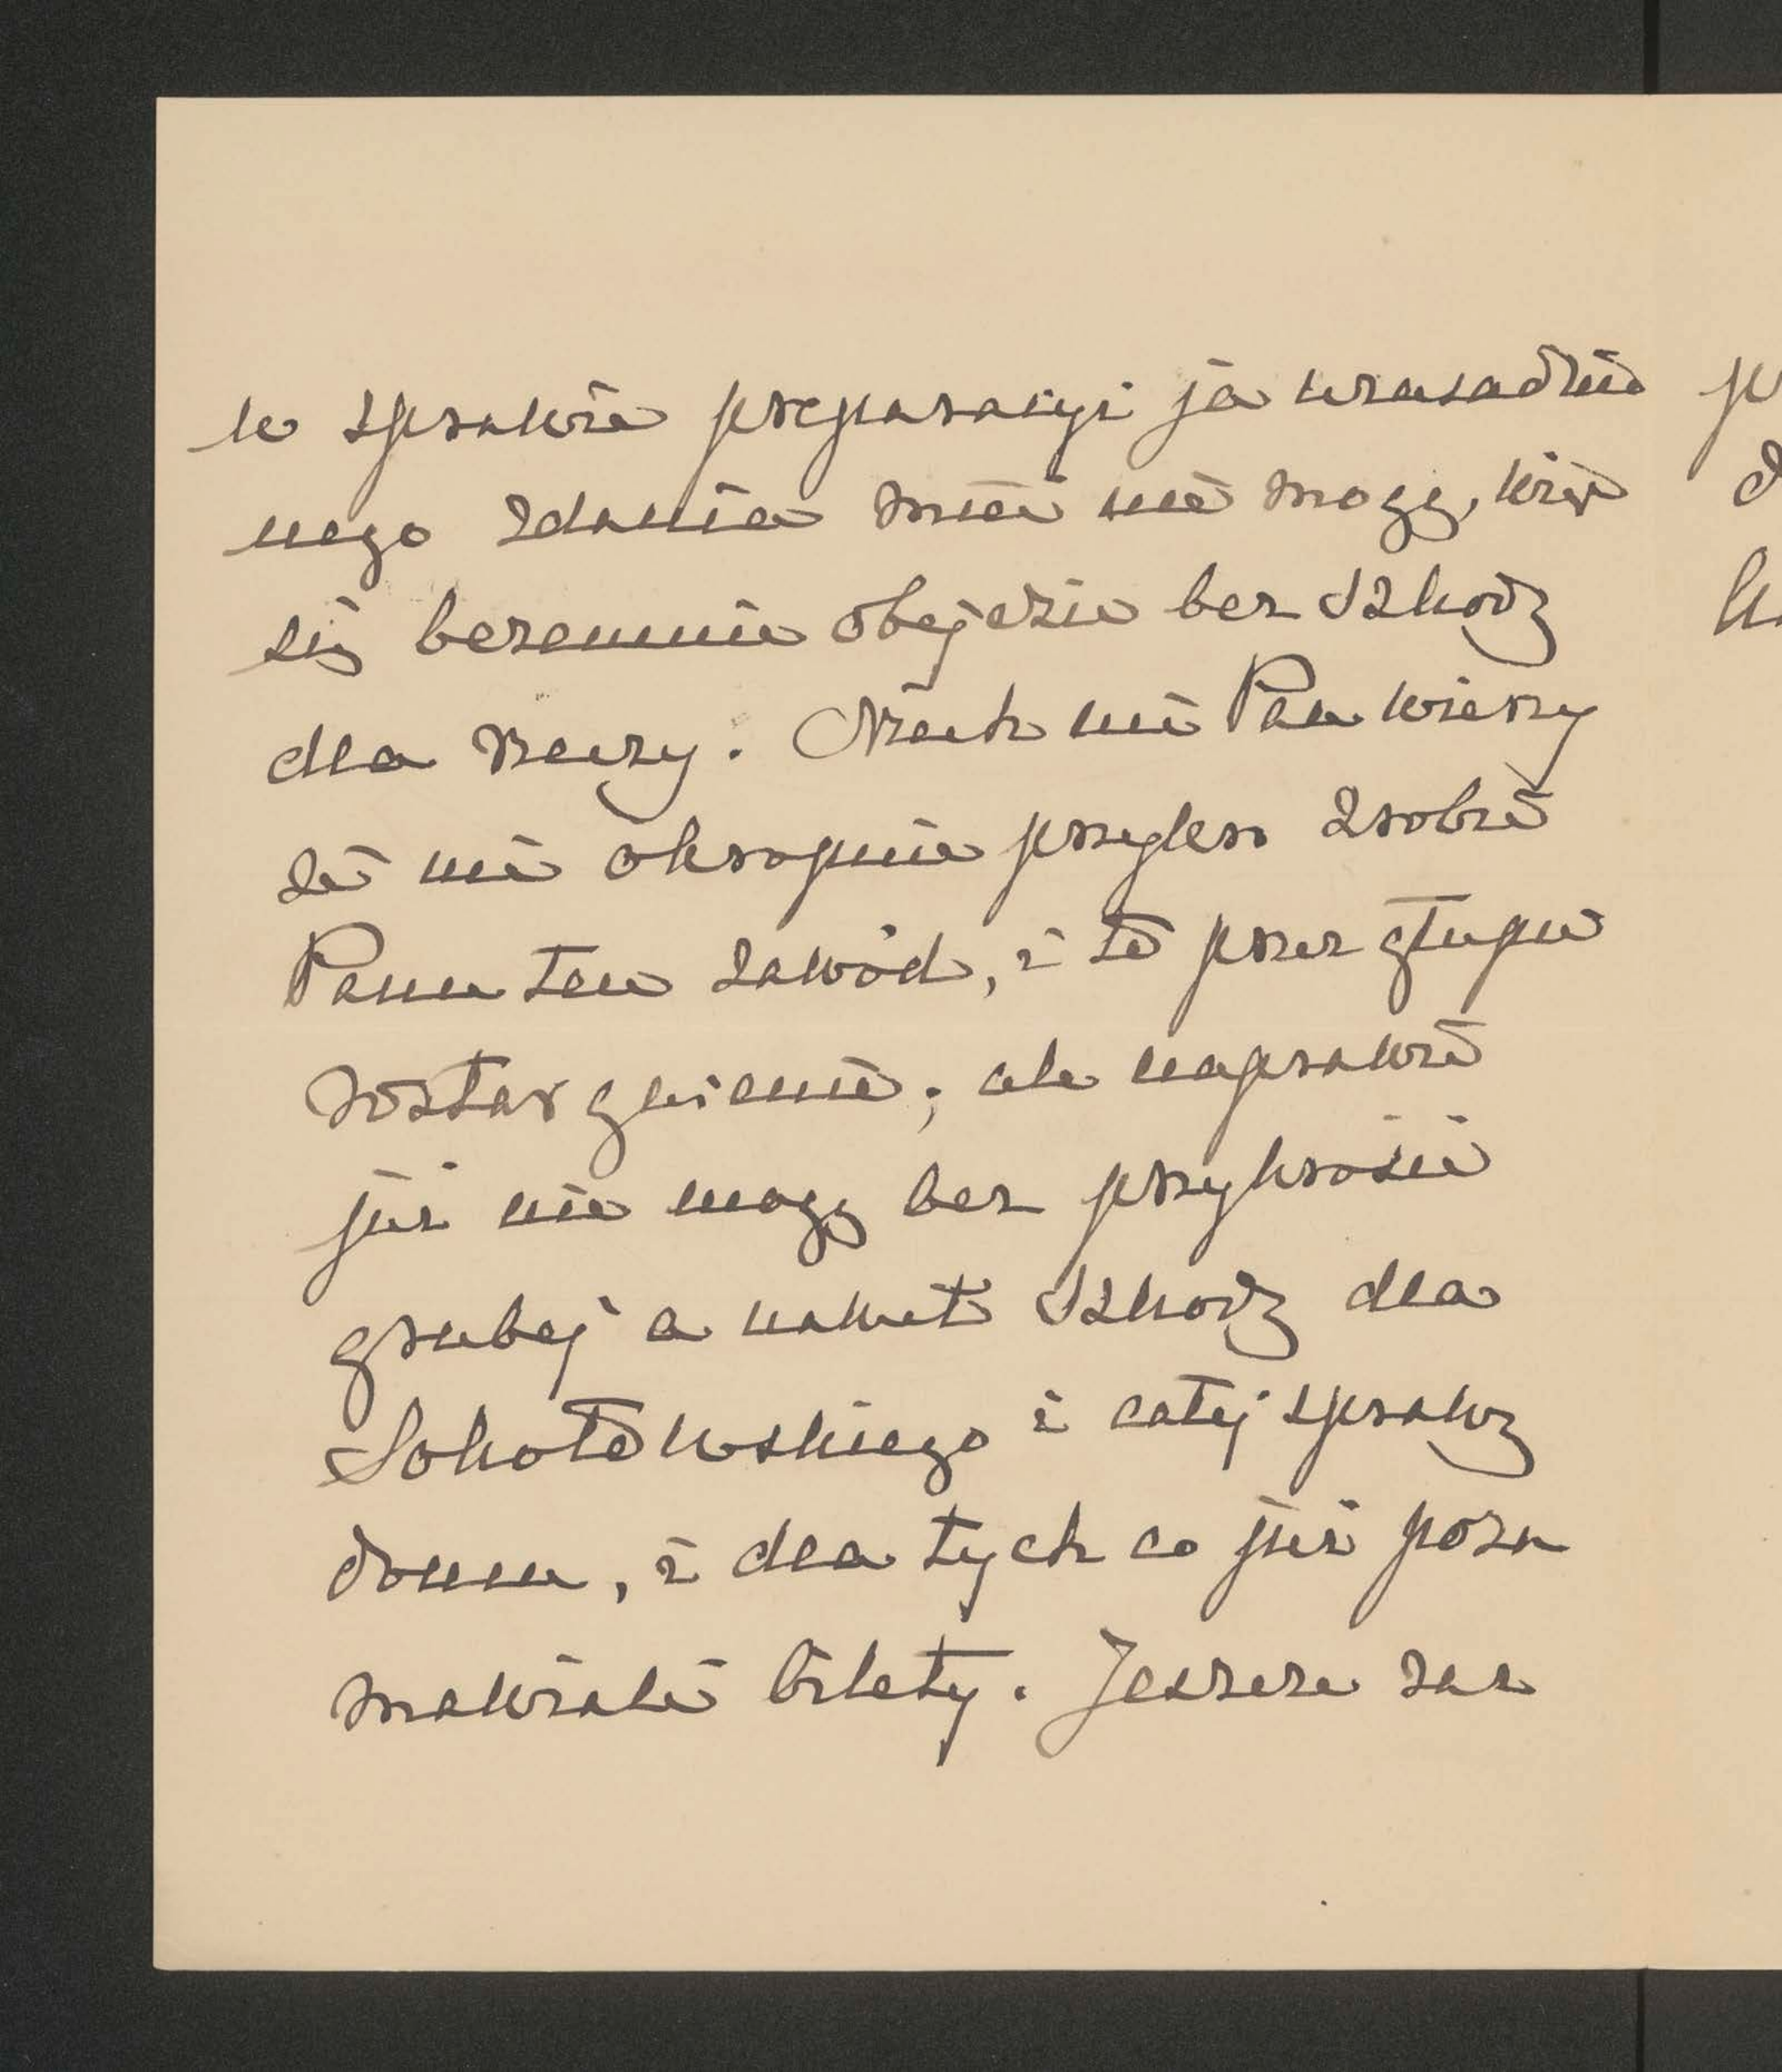 w sprawie preparacyi ja uzasadnio
nego zdania mieć nie mogę, więc
się bezemnie obejdzie bez szkody
dla rzeczy. Niech mi Pan wierzy
że mi okropnie przykro zrobić
Panu ten zawód, i to przez głupie
roztargnienie; ale naprawdę
już nie mogę bez przykrości
grubej a nawet szkody dla
Sokołowskiego i całej sprawy
domu, i dla tych co już poza
mawiali bilety. Jeszcze raz